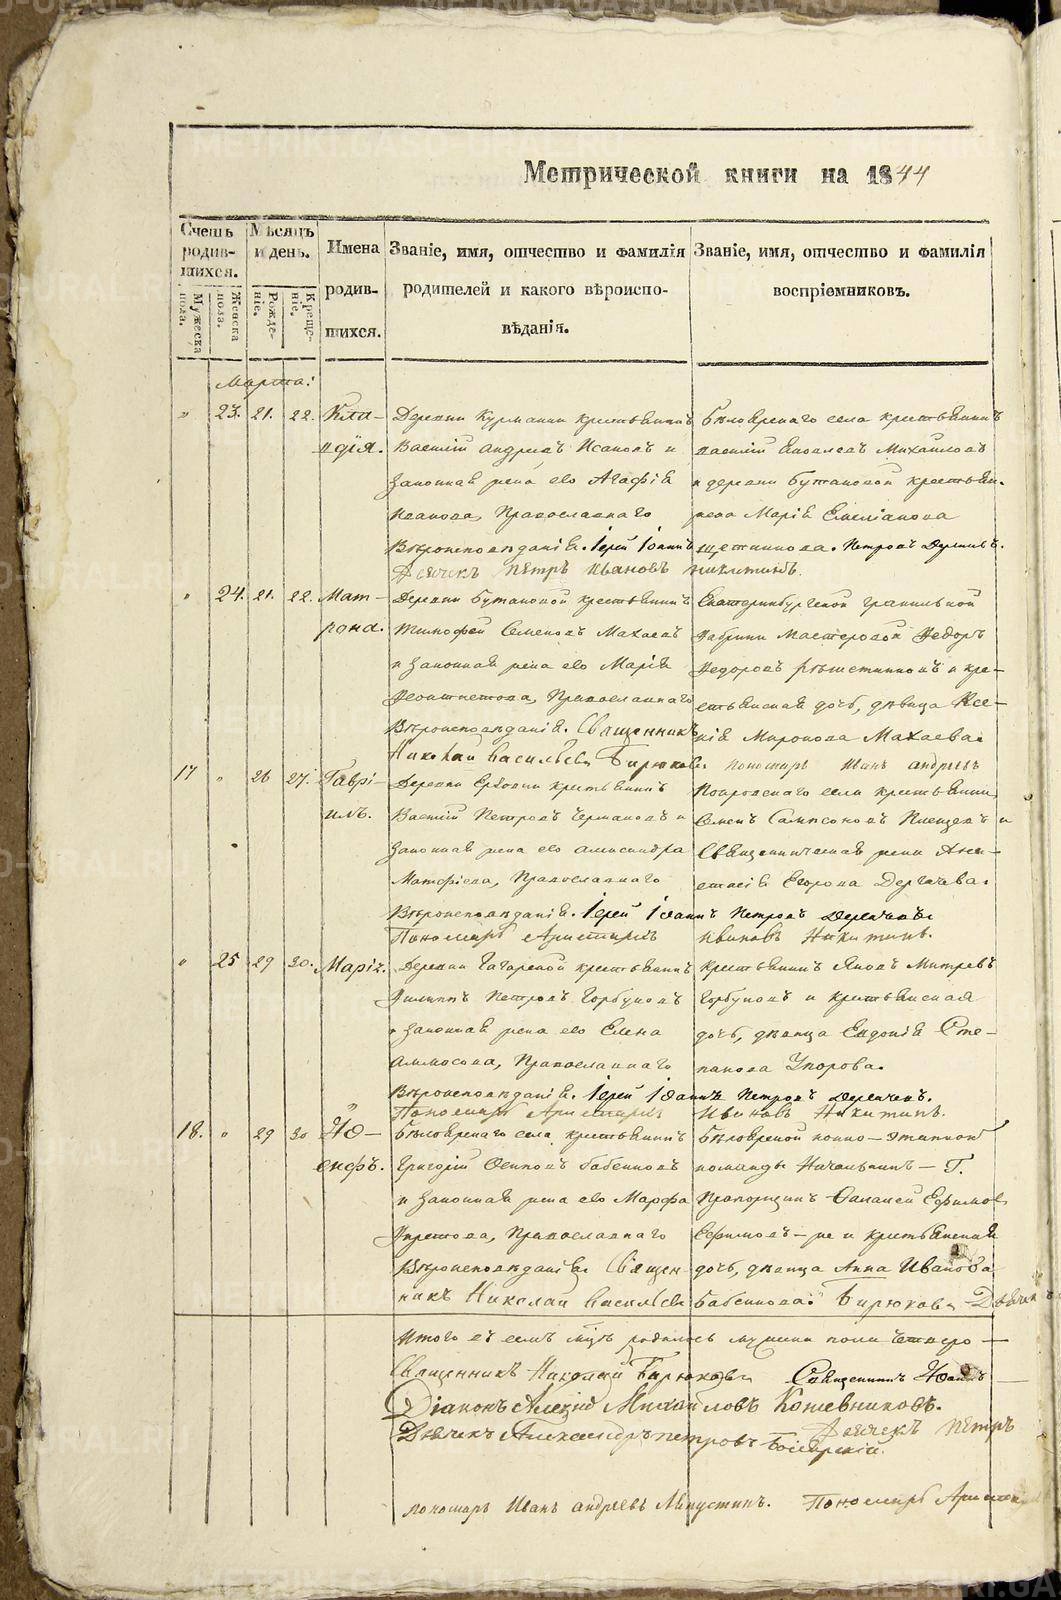 Метрической книги на 1844
Счетъ родив-шихся.
Мужеска пола.
Женска пола.
Мѣсяцъ и день.
Рожде-ніе.
Креще-ніе.
Имена родив-шихся.
Званіе, имя, отчество и фамилія родителей и какого вѣроиспо-вѣданія.
Званіе, имя, отчество и фамилія воспріемниковъ.
Марта:
" 23. 21. 22. Кла-
вдія.
Деревни Курманки крестьянинъ
Василій Андреевъ Исаковъ и
законная жена его Агафія
Иванова, Православнаго
Вѣроисповѣданія. Іерей Іоаннъ
Дьячекъ Петръ Ивановъ
Бѣлоярскаго села крестьянинъ
Василій Яковлевъ Михайловъ
и деревни Бутаковой крестьян.
жена Марія Емеліанова
Щетникова. Петровъ
Никитинъ.
" 24. 21. 22. Мат-
рона.
Деревни Бутаковой крестьянинъ
Тимофей Семеновъ Махаевъ
и законная жена его Марія
Православнаго
Вѣроисповѣданія. Священникъ
Николай Васильевъ Бирюковъ.
Екатеринбургской гранильной
фабрики мастеровой Ѳедоръ
Ѳедоровъ Рѣшетниковъ и кре-
стьянская дочь, дѣвица Ксе-
нія Миронова Махаева.
пономарь Иванъ Андреевъ
17 " 26 27. Гаврі-
илъ.
Деревни крестьянинъ
Василій Петровъ Чермаковъ и
законная жена его Александра
Матфіева, Православнаго
Вѣроисповѣданія. Іерей Іоаннъ
Пономарь
Покровскаго села крестьянинъ
Семенъ Сампсоновъ и
Священническая жена Ана-
стасія Егорова Дергачева.
Петровъ
Ивановъ Никитинъ.
" 25 29 30. Марія.
Деревни Гагарской крестьянинъ
Филиппъ Петровъ Горбуновъ
и законная жена его Елена
Аммосова, Православнаго
Вѣроисповѣданія. Іерей Іоаннъ
Пономарь
крестьянинъ Яковъ Митревъ
Горбуновъ и крестьянская
дочь, дѣвица Евдокія Сте-
панова Упорова.
Петровъ
Ивановъ Никитинъ.
18. " 29 30 Іо-
сифъ.
Бѣлоярскаго села крестьянинъ
Григорій Осиповъ Бабенковъ
и законная жена его Марфа
Православнаго
Вѣроисповѣданія. Священ
никъ Николай Васильевъ
Бѣлоярской конно-этапной
команды Начальникъ - Г.
Прапорщикъ Ефимовъ
Ефимовъ-же и крестьянская
дочь, дѣвица Анна Иванова
Бабенкова. Бирюковъ Дьячекъ
Итого въ семъ мѣс. родилось мужеска пола
Священникъ Николай Бирюковъ Священникъ Іоаннъ
Діаконъ Алексій Михайловъ Кожевниковъ.
Дьячекъ Александръ Петровъ Дьячекъ Петръ
пономарь Иванъ Андреевъ Пономарь